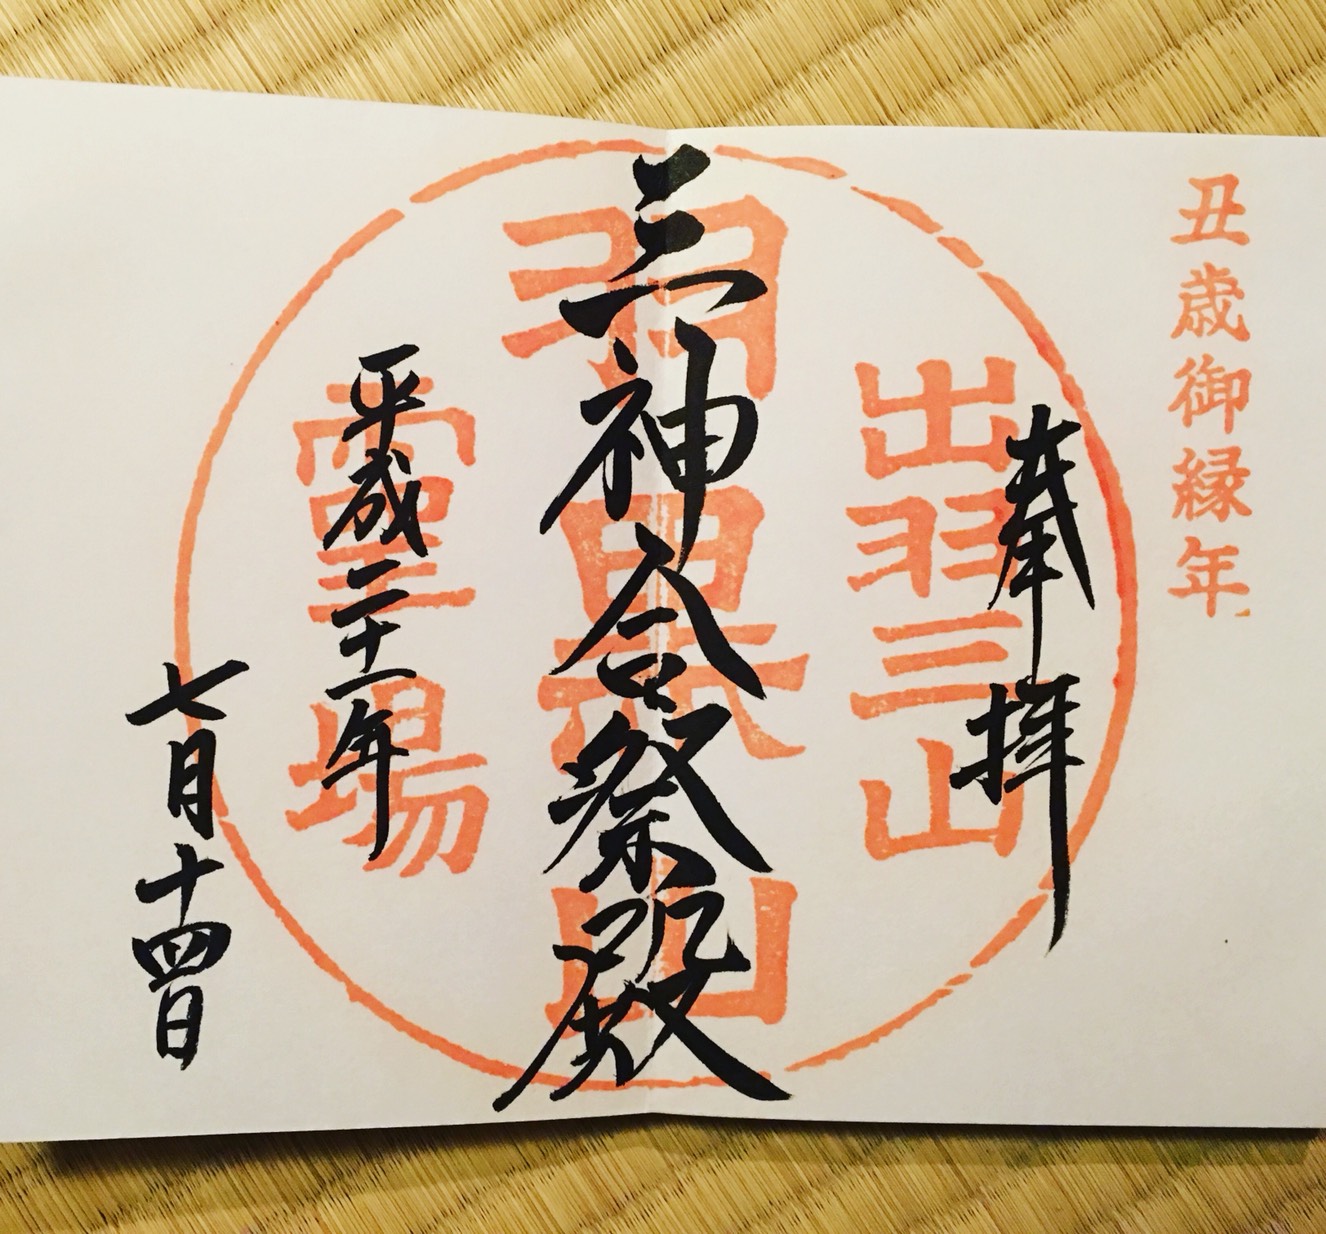 丑歳御縁年
奉拝
出羽三山
三神合祭殿
羽黒山
霊場
平成二十一年
七月十四日